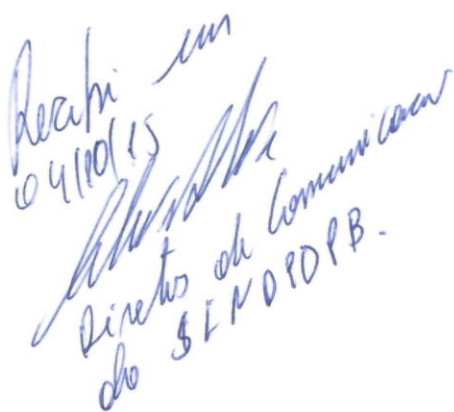 Recebi em
04/10/15
Diretor de Comunicacao
do SINDPDPB.